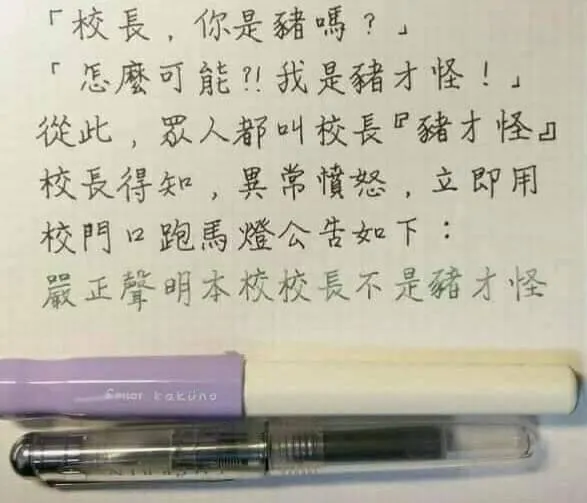 「校長，你是豬嗎？」
「怎麼可能?!我是豬才怪！」
從此，眾人都叫校長『豬才怪』
校長得知，異常憤怒，立即用
校門口跑馬燈公告如下：
嚴正聲明本校校長不是豬才怪
PILOT kaküno